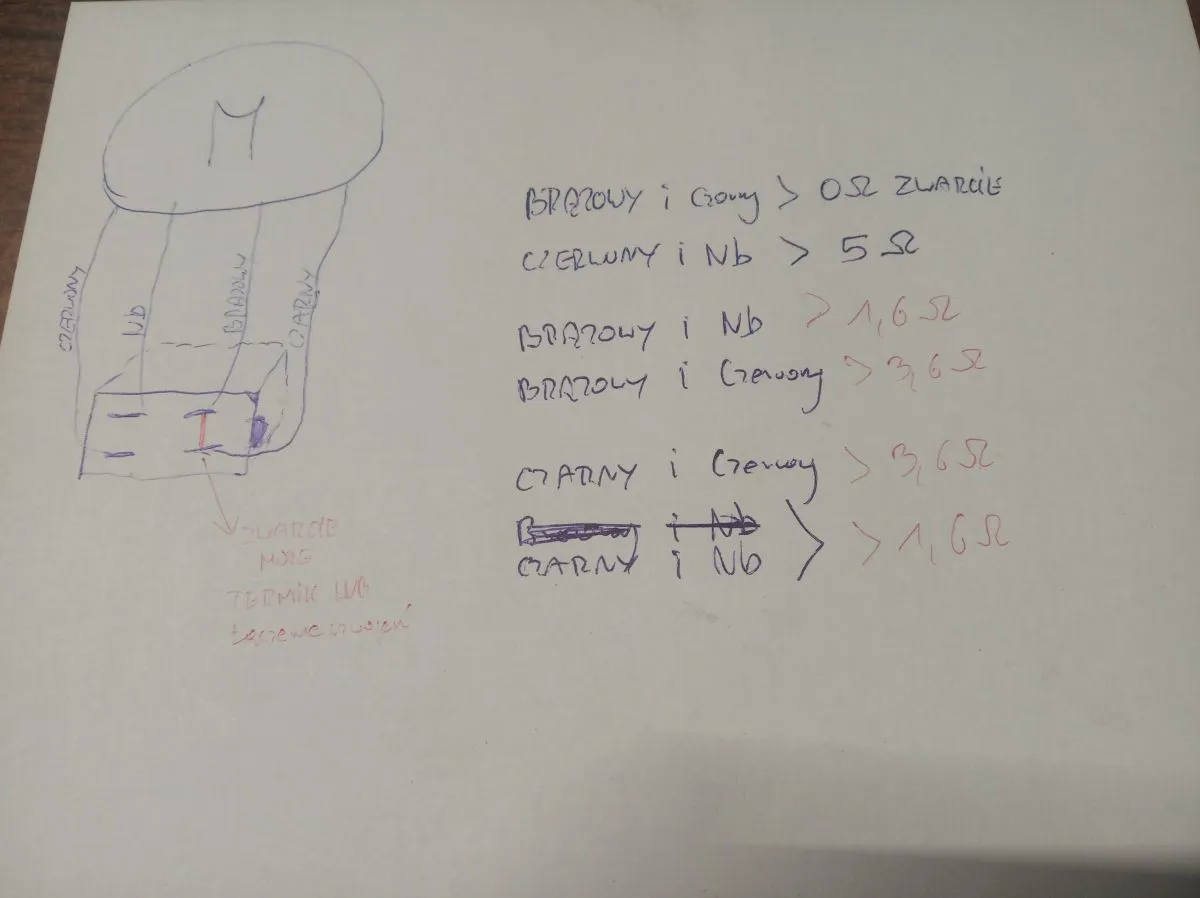 M
CZERWONY
Nb
BRĄZOWY
CZARNY
ZWARCIE
MOŻE
TERMIK LUB
BRĄZOWY i Czarny > 0Ω ZWARCIE
CZERWONY i Nb > 5Ω
BRĄZOWY i Nb > 1,6Ω
BRĄZOWY i Czerwony > 3,6Ω
CZARNY i Czerwony > 3,6Ω
i Nb
CZARNY i Nb > > 1,6Ω